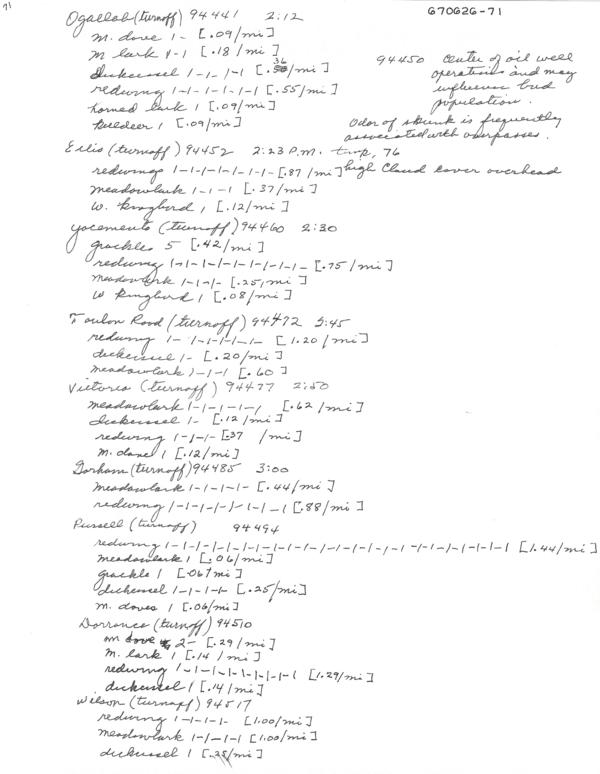 71
670626-71
Ogallah (turnoff) 94441 2:12
m. dove 1- [.09/mi]
m lark 1-1 [.18/mi]
dickcissel 1-1-1-1 [.36/mi]
redwing 1-1-1-1-1-1 [.55/mi]
horned lark 1 [.09/mi]
killdeer 1 [.09/mi]
94450 Center of oil well
operations and may
influence bird
population.
Odor of skunk is frequently
associated with overpasses.
Ellis (turnoff) 94452 2:23 P.M. temp, 76
high cloud cover overhead
redwings 1-1-1-1-1-1-1- [.87/mi]
meadowlark 1-1-1 [.37/mi]
W. kingbird 1 [.12/mi]
Yocemento (turnoff) 94460 2:30
grackle 5 [.42/mi]
redwing 1-1-1-1-1-1-1-1-1- [.75/mi]
meadowlark 1-1-1- [.25/mi]
W kingbird 1 [.08/mi]
Toulon Road (turnoff) 94472 2:45
redwing 1-1-1-1-1-1- [1.20/mi]
dickcissel 1- [.20/mi]
meadowlark 1-1-1 [.60]
Victoria (turnoff) 94477 2:50
meadowlark 1-1-1-1-1 [.62/mi]
dickcissel 1- [.12/mi]
redwing 1-1-1- [.37 /mi]
m. dove 1 [.12/mi]
Gorham (turnoff) 94485 3:00
meadowlark 1-1-1-1- [.44/mi]
redwing 1-1-1-1-1-1-1-1 [.88/mi]
Russell (turnoff) 94494
redwing 1-1-1-1-1-1-1-1-1-1-1-1-1-1-1-1-1-1-1-1-1-1-1 [1.44/mi]
meadowlark 1 [.06/mi]
grackle 1 [.06/mi]
dickcissel 1-1-1-1- [.25/mi]
m. doves 1 [.06/mi]
Dorrance (turnoff) 94510
m dove 2- [.29/mi]
m. lark 1 [.14/mi]
redwing 1-1-1-1-1-1-1-1-1 [1.29/mi]
dickcissel 1 [.14/mi]
Wilson (turnoff) 94517
redwing 1-1-1-1- [1.00/mi]
meadowlark 1-1-1-1 [1.00/mi]
dickcissel 1 [.25/mi]